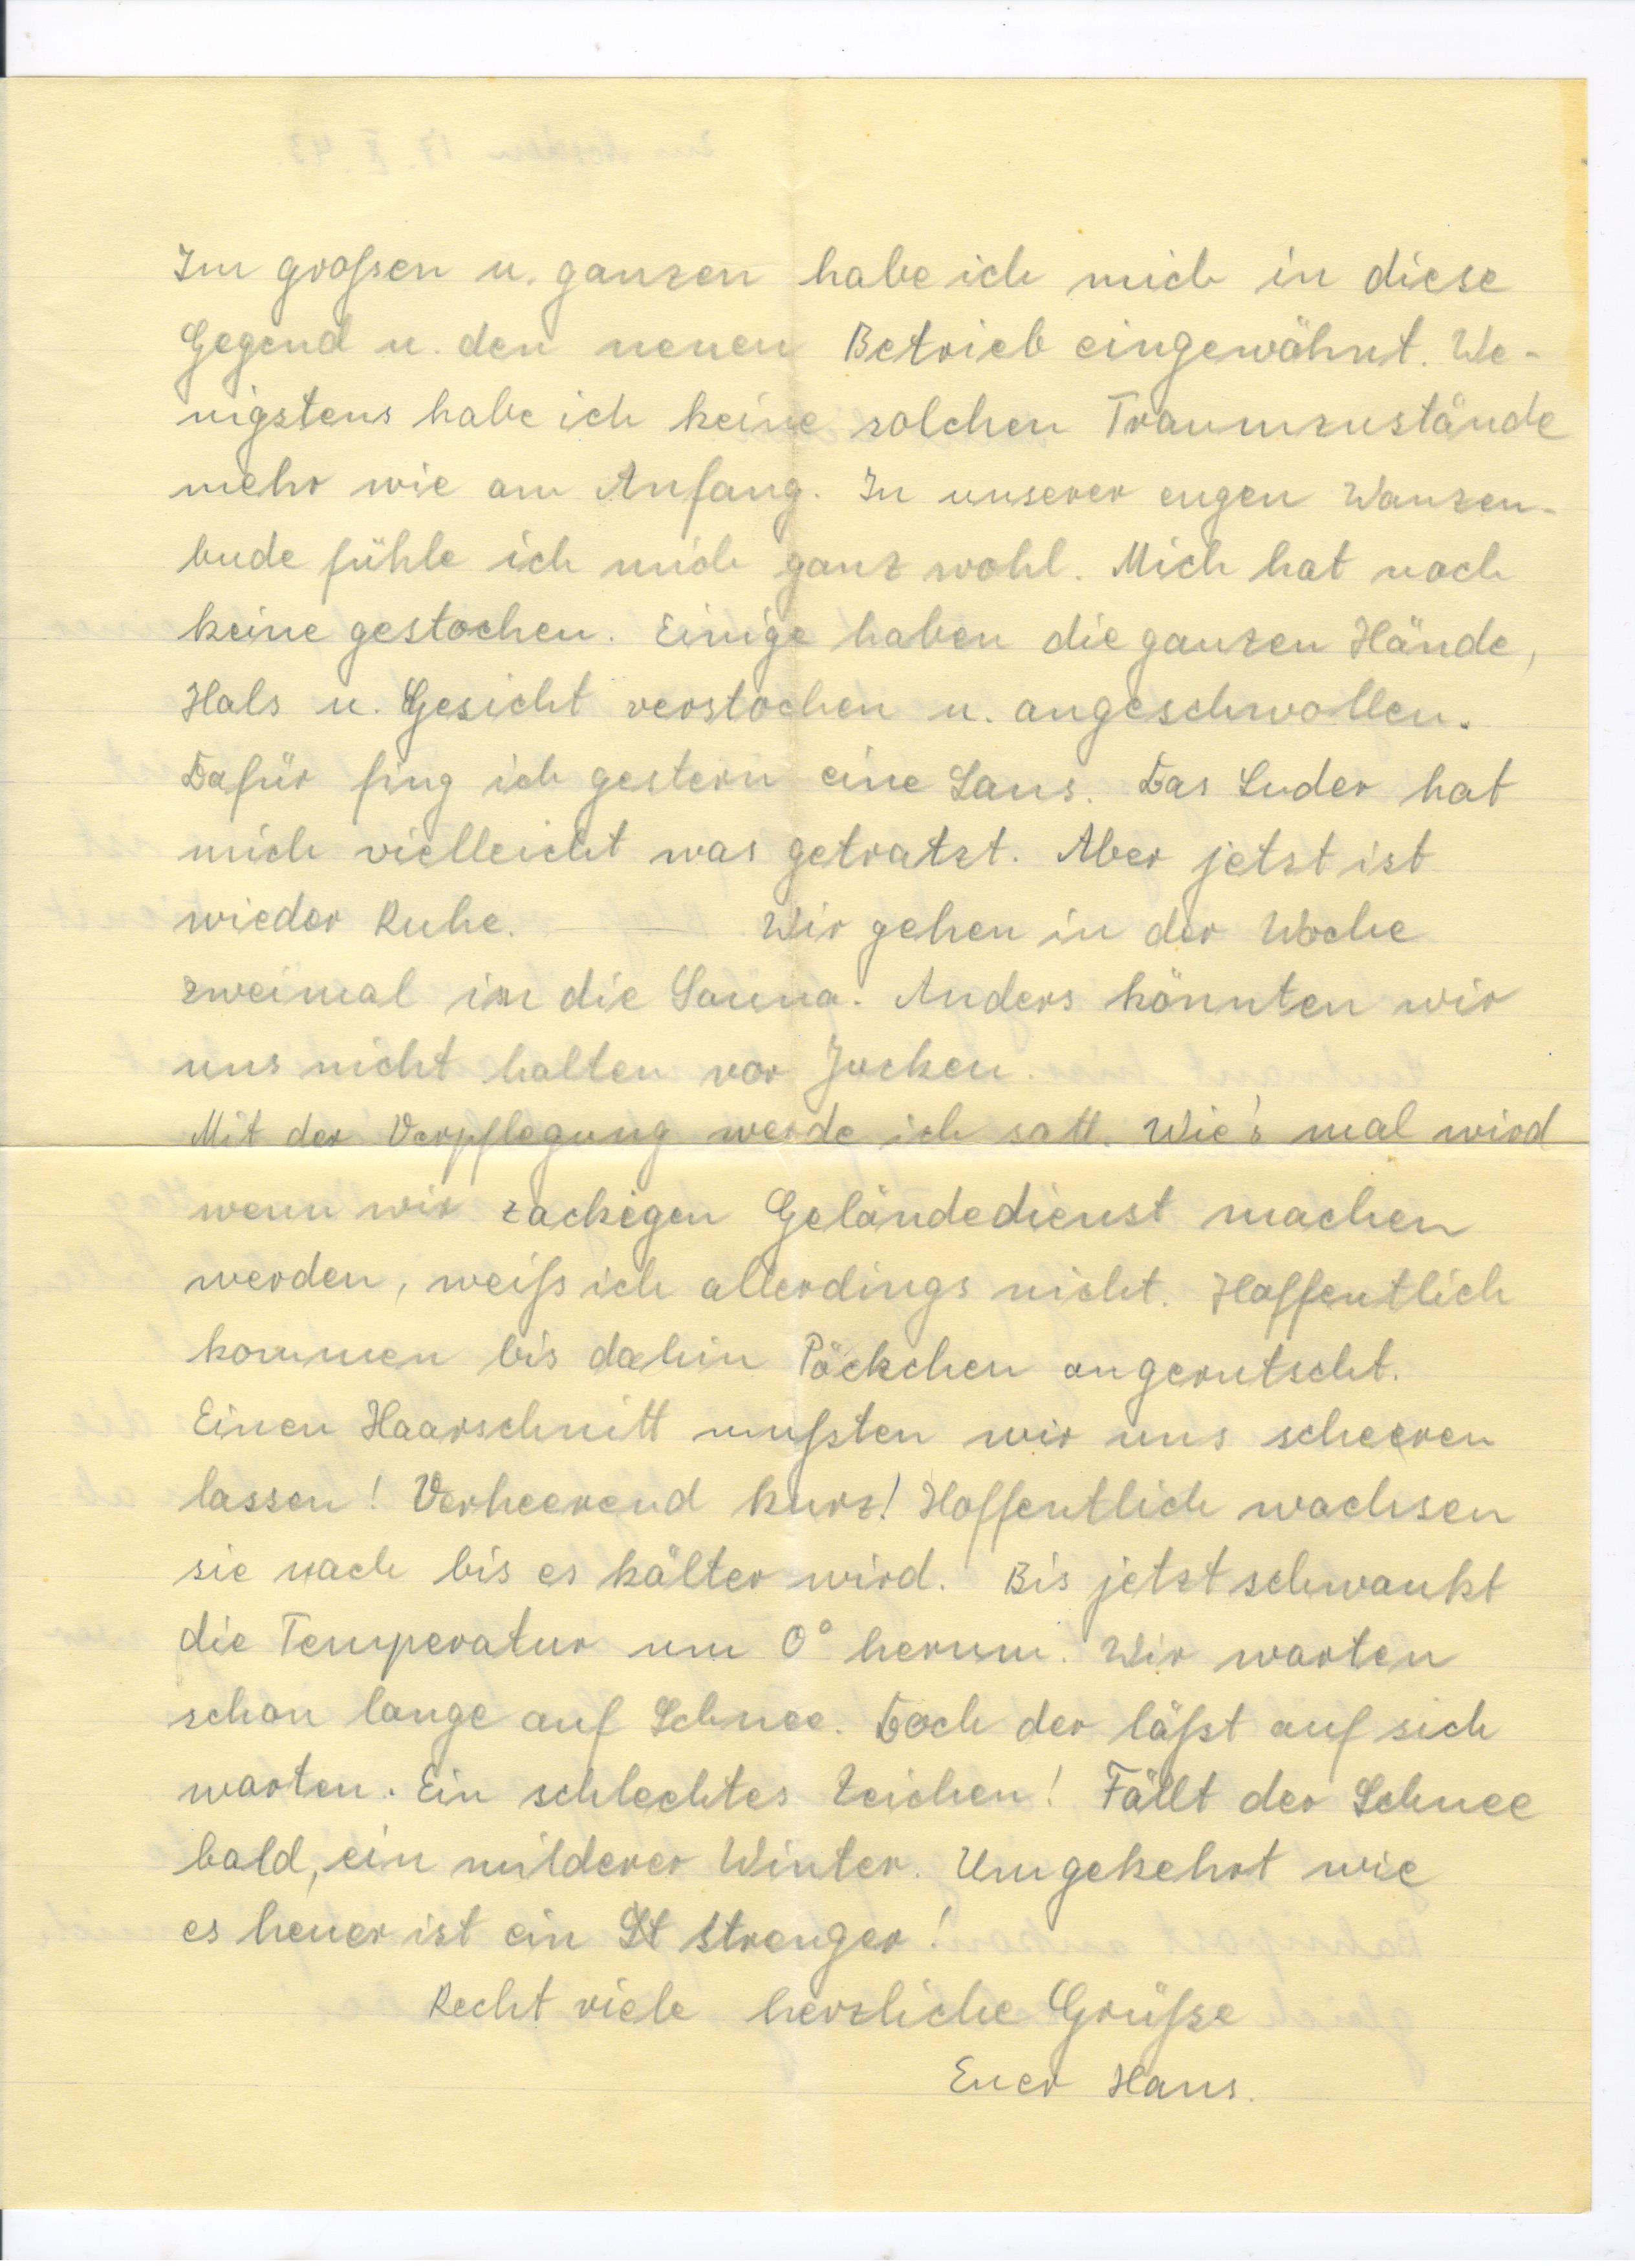 Im großen u. ganzen habe ich mich in diese
Gegend u. den neuen Betrieb eingewöhnt. We-
nigstens habe ich keine solchen Traumzustände
mehr wie am Anfang. In unserer engen Wanzen-
bude fühle ich mich ganz wohl. Mich hat noch
keine gestochen. Einige haben die ganzen Hände,
Hals u. Gesicht verstochen u. angeschwollen.
Dafür fing ich gestern eine Laus. Das Luder hat
mich vielleicht was getratzt. Aber jetzt ist
wieder Ruhe. —— Wir gehen in der Woche
zweimal in die Sauna. Anders könnten wir
uns nicht halten vor Jucken.
Mit der Verpflegung werde ich satt. Wie's mal wird
wenn wir zackigen Geländedienst machen
werden, weiß ich allerdings nicht. Hoffentlich
kommen bis dahin Päckchen angerutscht.
Einen Haarschnitt mußten wir uns scheeren
lassen! Verheerend kurz! Hoffentlich wachsen
sie nach bis es kälter wird. Bis jetzt schwankt
die Temperatur um 0° herum. Wir warten
schon lange auf Schnee. Doch der läßt auf sich
warten. Ein schlechtes Zeichen! Fällt der Schnee
bald, ein milderer Winter. Umgekehrt wie
es heuer ist ein St strenger!
Recht viele herzliche Grüße
Euer Hans.